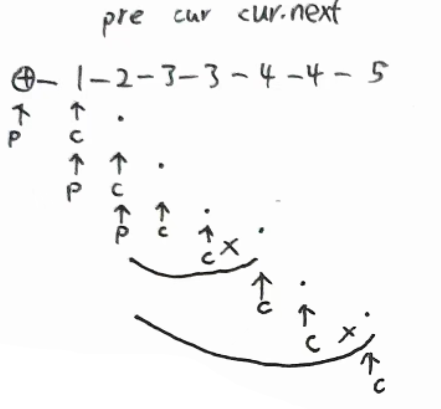 pre cur cur.next
⊕-1-2-3-3-4-4-5
P C
P C
P C C X
C
C X
C